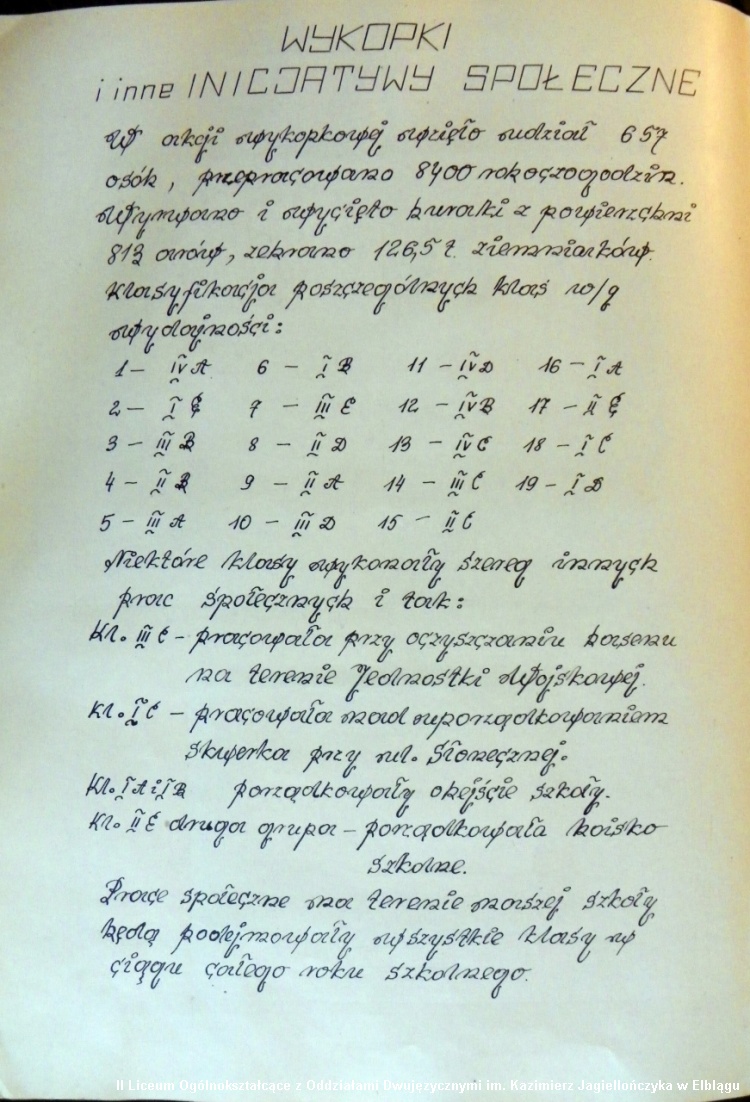 WYKOPKI
i inne INICJATYWY SPOŁECZNE
W akcji wykopkowej wzięło udział 657
osób, przepracowano 8400 roboczogodzin.
Wyrwano i wycięto buraki z powierzchni
813 arów, zebrano 126,5 t. ziemniaków.
Klasyfikacja poszczególnych klas w/g
wydajności:
1 – IV A 6 – I B 11 – IV D 16 – I A
2 – I E 7 – III E 12 – IV B 17 – II E
3 – III B 8 – II D 13 – IV C 18 – I C
4 – II B 9 – II A 14 – III C 19 – I D
5 – III A 10 – III D 15 – II C
Niektóre klasy wykonały szereg innych
prac społecznych i tak:
Kl. III C – pracowała przy oczyszczaniu basenu
na terenie Jednostki Wojskowej.
Kl. I C – pracowała nad uporządkowaniem
skwerka przy ul. Słonecznej.
Kl. I A i I B porządkowały obejście szkoły.
Kl. II C druga grupa – porządkowała boisko
szkolne.
Prace społeczne na terenie naszej szkoły
będą podejmowały wszystkie klasy w
ciągu całego roku szkolnego.
II Liceum Ogólnokształcące z Oddziałami Dwujęzycznymi im. Kazimierz Jagiellończyka w Elblągu